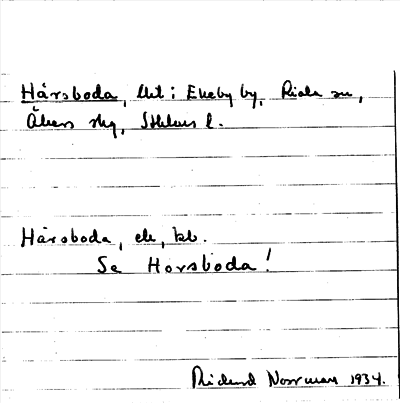 Hårsboda, lht i Ekeby by, Riala sn,
Åkers skg, Sthlms l.
Hårsboda, ek, kb.
Se Horsboda!
Rickard Norrman 1934.